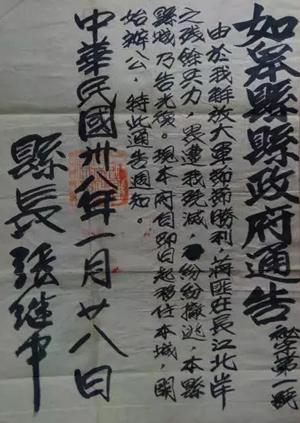 如皋縣縣政府通告
秘字第一號
由於我解放大軍節節勝利，蔣匪在長江北岸
之殘餘兵力，累遭我殲滅，紛紛撤逃，本縣
縣城乃告光復。現本府自即日起移住本城，開
始辦公，特此通告週知。
中華民國卅八年一月廿八日
縣長張继中